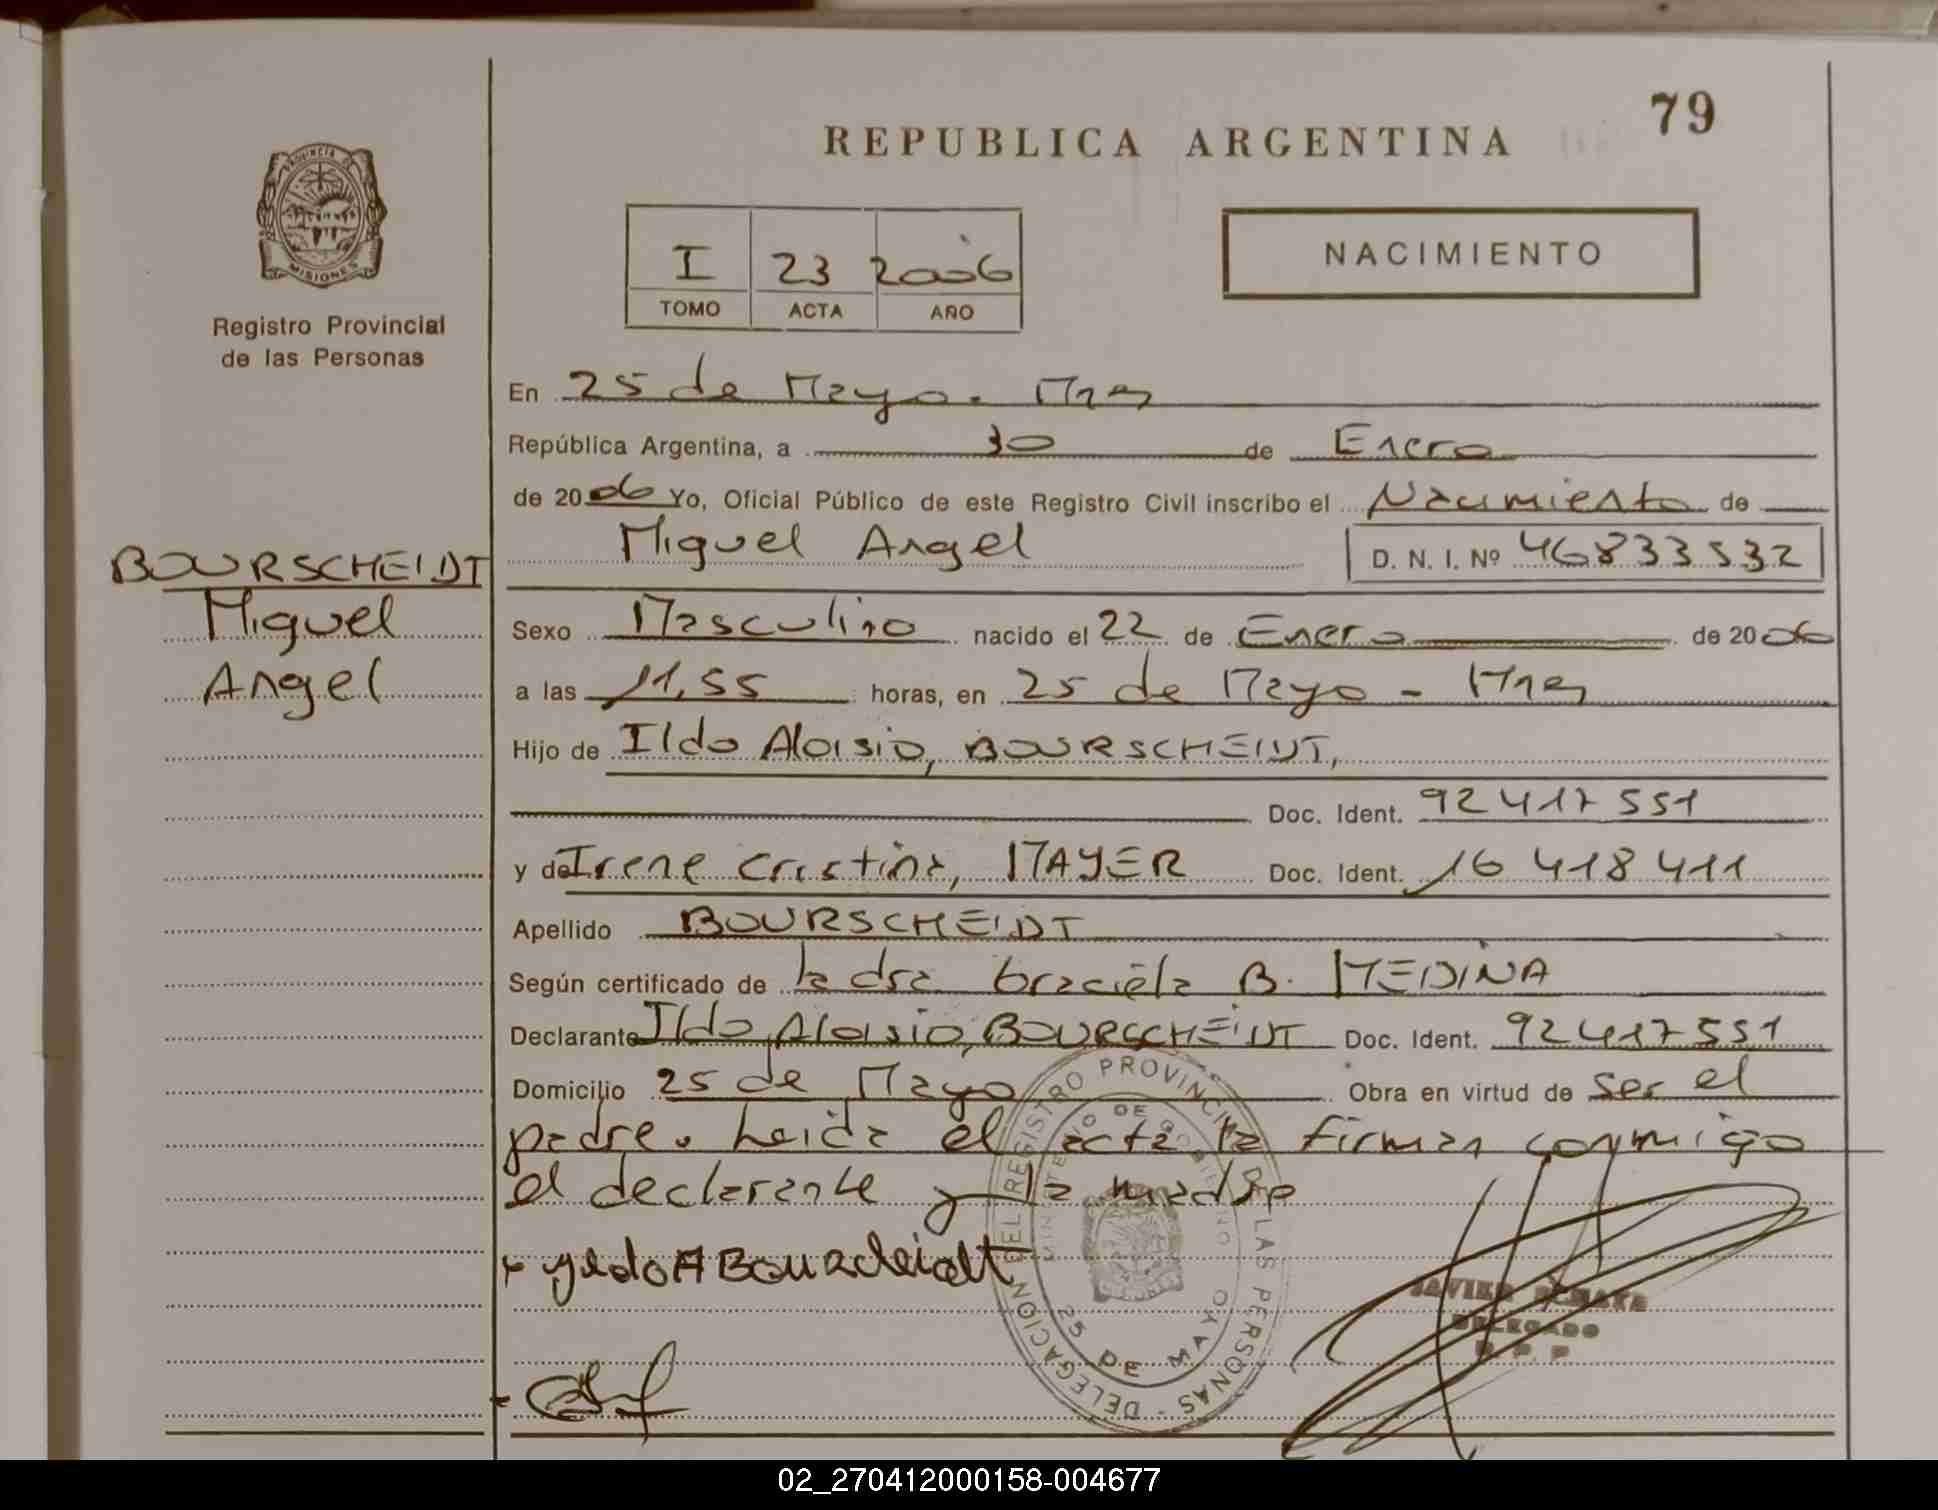 79
REPUBLICA ARGENTINA
PROVINCIA DE
MISIONES
Registro Provincial
de las Personas
I 23 2006
TOMO ACTA AÑO
NACIMIENTO
En 25 de Mayo. Mnes
República Argentina, a 30 de Enero
de 2006 Yo, Oficial Público de este Registro Civil inscribo el Nacimiento de
Miguel Angel D. N. I. Nº 46833532
BOURSCHEIDT
Miguel
Angel
Sexo Masculino nacido el 22 de Enero de 2006
a las 11,55 horas, en 25 de Mayo - Mnes
Hijo de Ildo Aloisio, BOURSCHEIDT,
Doc. Ident. 92417551
y de Irene Cristina, MAYER Doc. Ident. 16418411
Apellido BOURSCHEIDT
Según certificado de la dra Graciela B. MEDINA
Declarante Ildo Aloisio, BOURSCHEIDT Doc. Ident. 92417551
Domicilio 25 de Mayo Obra en virtud de ser el
padre. Leida el acta la firman conmigo
el declarante y la madre
DELEGACION DEL REGISTRO PROVINCIAL DE LAS PERSONAS -
MINISTERIO DE GOBIERNO
25 DE MAYO
JAVIER
DELEGADO
R. P. P.
02_270412000158-004677